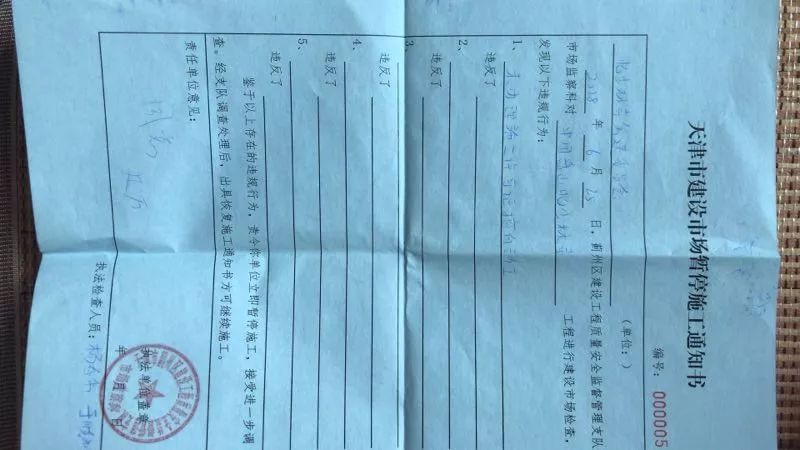 天津市建设市场暂停施工通知书
编号：000005
（单位：）
2018 年 6 月 25 日，蓟州区建设工程质量安全监督管理支队
市场监察科对 工程进行建设市场检查，
发现以下违规行为：
1、未办理施工许可证擅自动工
违反了
2、
违反了
3、
违反了
4、
违反了
5、
违反了
鉴于以上存在的违规行为，责令你单位立即暂停施工，接受进一步调
查。经支队调查处理后，出具恢复施工通知书方可继续施工。
责任单位意见：
执法单位盖章
年 月 日
执法检查人员：